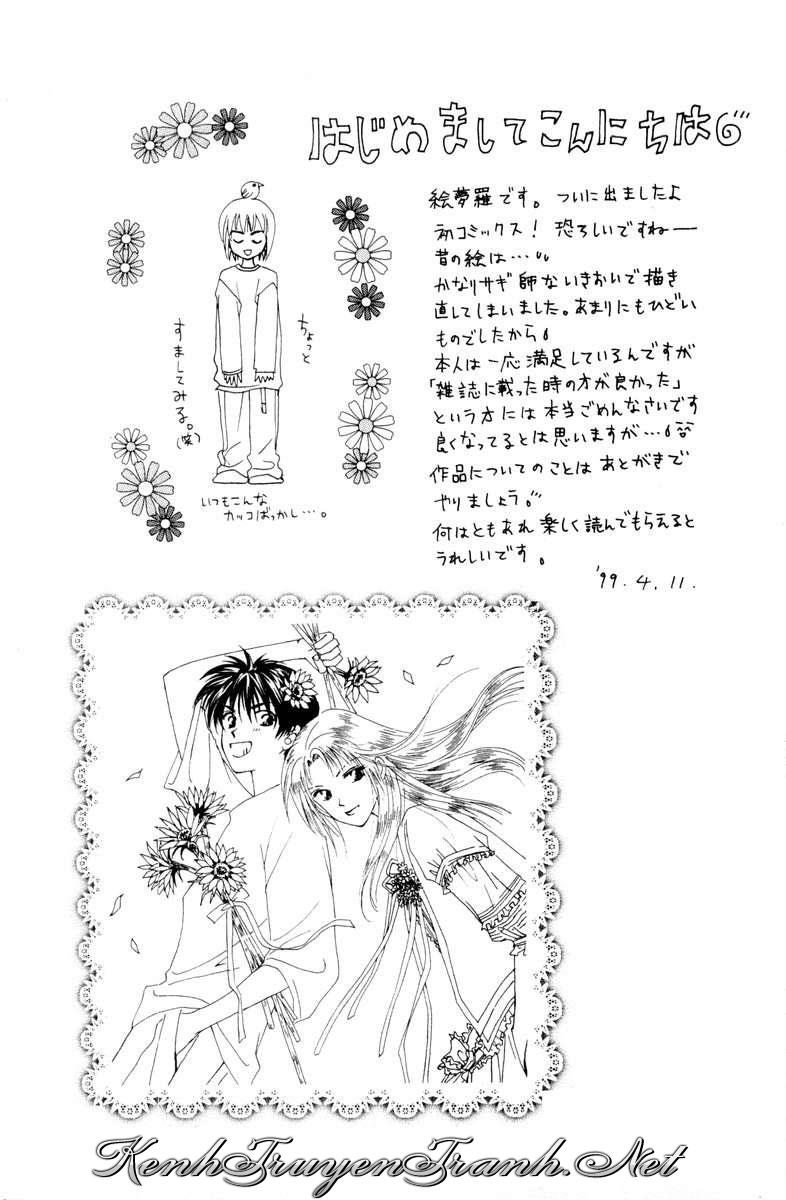 はじめましてこんにちは
絵夢羅です。ついに出ましたよ
初コミックス！恐ろしいですねー
昔の絵は…
かなりサギ師ないきおいで描き
直してしまいました。あまりにもひどい
ものでしたから
本人は一応満足しているんですが
「雑誌に載った時の方が良かった」
という方には本当ごめんなさいです
良くなってるとは思いますが…
作品についてのことはあとがきで
やりましょう。
何はともあれ楽しく読んでもらえると
うれしいです。
'99.4.11.
ちょっと
すましてみる。(笑)
いつもこんな
カッコばっかし…。
KenhTruyenTranh.Net